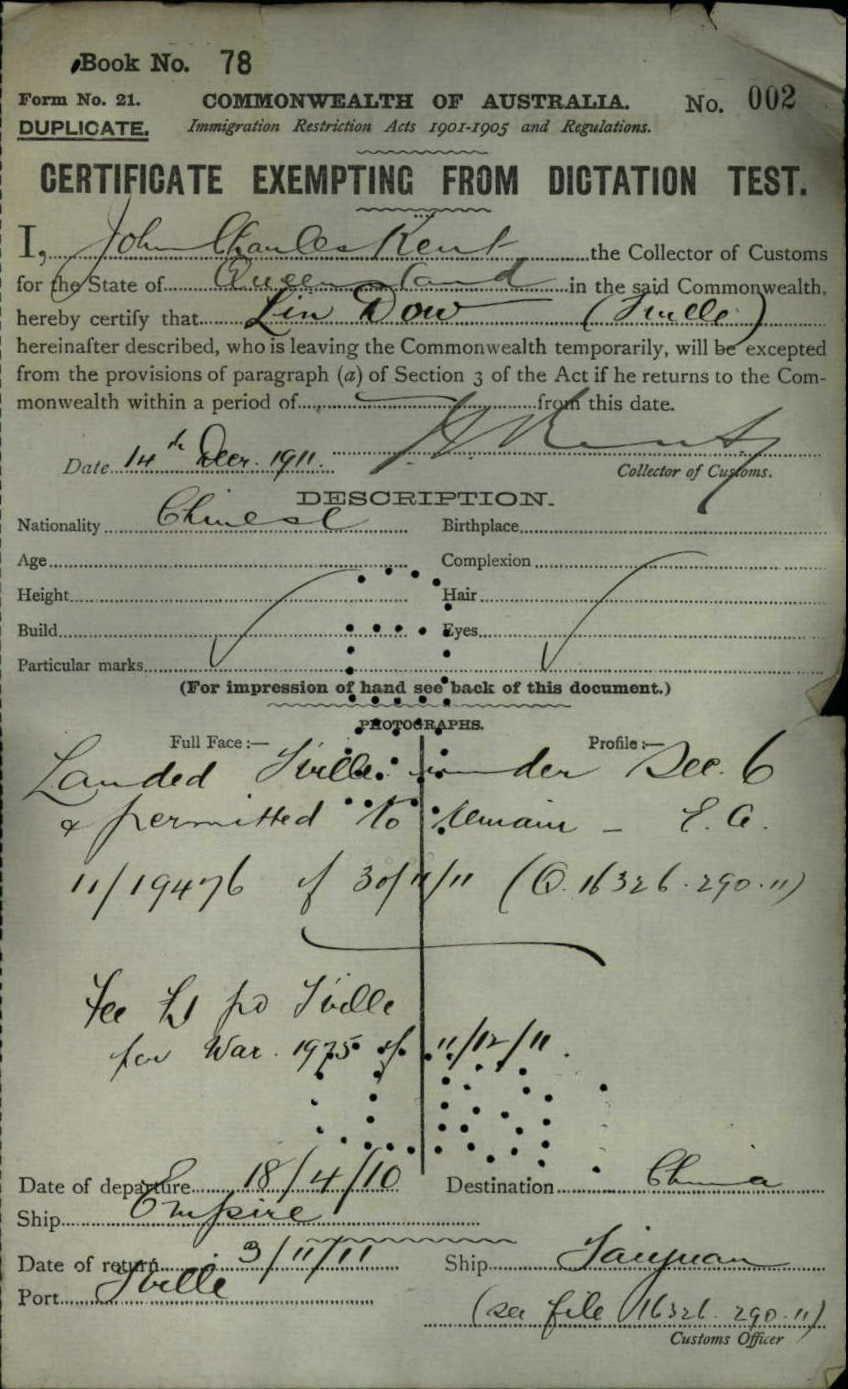 Book No. 78
Form No. 21. COMMONWEALTH OF AUSTRALIA. No. 002
DUPLICATE. Immigration Restriction Acts 1901-1905 and Regulations.
CERTIFICATE EXEMPTING FROM DICTATION TEST.
I, John Charles Kent the Collector of Customs
for the State of Queensland in the said Commonwealth,
hereby certify that Lin Dow (T'ville)
hereinafter described, who is leaving the Commonwealth temporarily, will be excepted
from the provisions of paragraph (a) of Section 3 of the Act if he returns to the Com-
monwealth within a period of from this date.
Date 14th Decr. 1911. Collector of Customs.
DESCRIPTION.
Nationality Chinese Birthplace
Age Complexion
Height Hair
Build Eyes
Particular marks
(For impression of hand see back of this document.)
PHOTOGRAPHS.
Full Face :— Profile :—
Landed T'ville under Sec. 6
& permitted to remain - E.A.
11/19476 of 30/11/11 (Q. 16326. 290. 11)
Fee £1 pd T'ville
for War. 1975 of 11/12/11.
Date of departure 18/4/10 Destination China
Ship Empire
Date of return 3/11/11 Ship Taiyuan
Port T'ville
(see file 16326. 290. 11)
Customs Officer